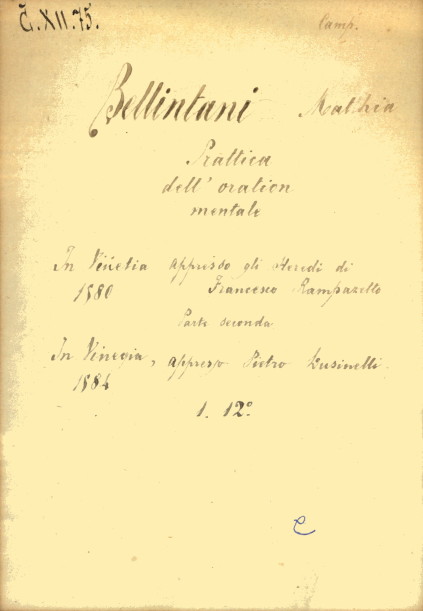 Č. XII. 75.
Camp.
Bellintani Mathia
Prattica
dell' oration
mentale
In Venetia appresso gli Heredi di
1580 Francesco Rampazetto
Parte seconda
In Vinegia, appreso Pietro Lusinelli
1584
1. 12°
C